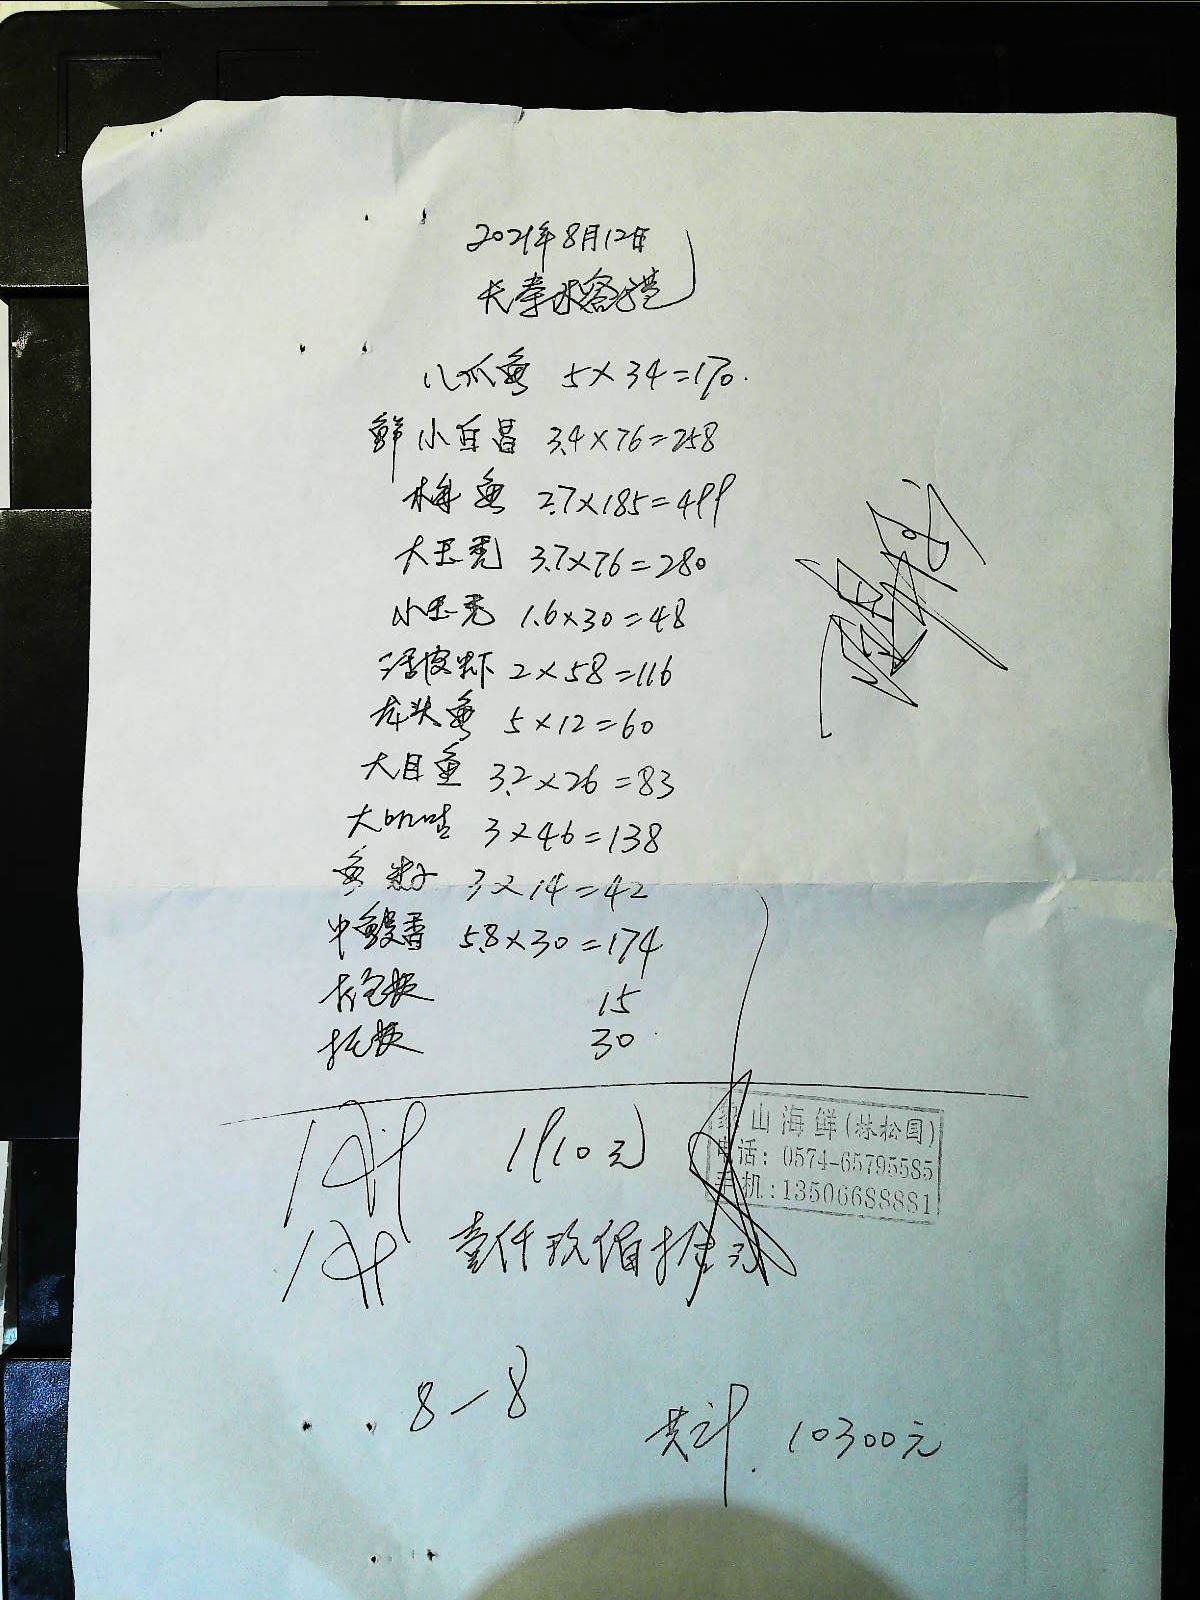 2021年8月12日
八爪鱼 5×34=170.
鲜小白昌 3.4×76=258
梅鱼 2.7×185=499
大玉秃 3.7×76=280
小玉秃 1.6×30=48
活皮虾 2×58=116
龙头鱼 5×12=60
大目鱼 3.2×26=83
大 3×46=138
鱼 3×14=42
中鳗香 5.8×30=174
15
30
1910元
象山海鲜(林松国)
电话:0574-65795585
手机:13506688881
壹仟玖佰拾元
8-8
共计. 10300元